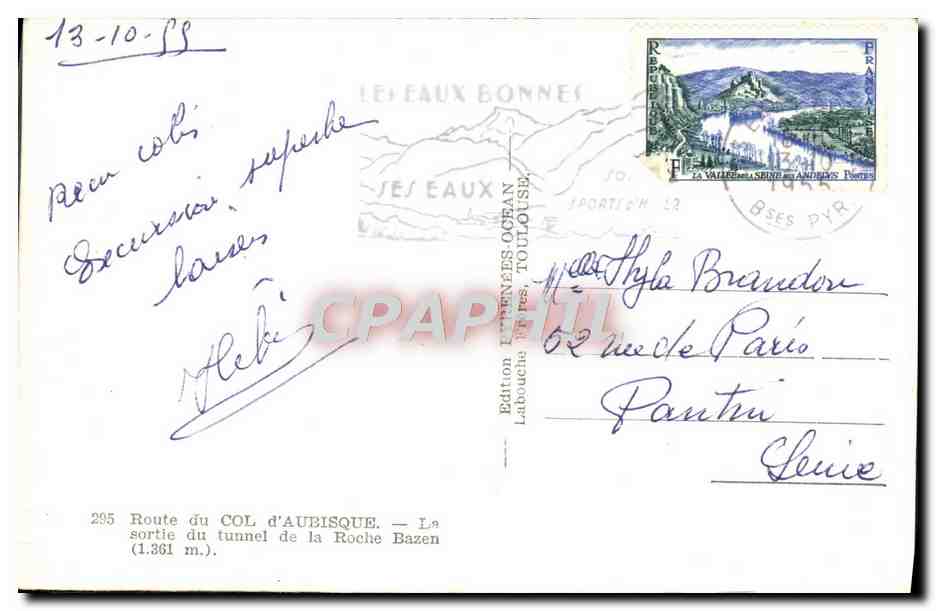 13-10-55
Beau colis
Excursion superbe
baisers
LES EAUX BONNES
SES EAUX
SPORTS D'H
RÉPUBLIQUE
FRANÇAISE
F
LA VALLÉE DE LA SEINE AUX ANDELYS POSTES
1955
BSES PYR.
Edition PYRENÉES-OCEAN
Labouche Frères, TOULOUSE.
CPAPHIL
Melle Hyla Brandon
52 rue de Paris
Pantin
Seine
295 Route du COL d'AUBISQUE. — La
sortie du tunnel de la Roche Bazen
(1.361 m.).